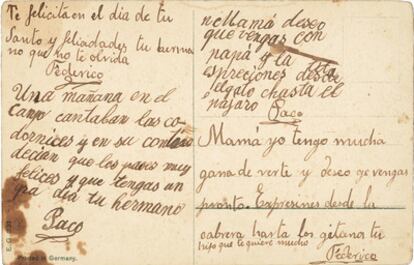 Te felicita en el dia de tu
Santo y felicidades tu hermano
no que no te olvida
Federico
Una mañana en el
Canpo cantaban las co
dornices y en su
decien que los pases muy
felices y que tengas un
dia tu hermano
Paco
Mamá deseo
que vengas con
papá y la
espreciones desde
gato hasta el
pájaro
Paco
Mamá yo tengo mucha
gana de verte y deseo qe vengas
pronto. Expresiones desde la
cabrera hasta los gitanos tu
hijo que te quiere mucho
Federico
Printed in Germany.